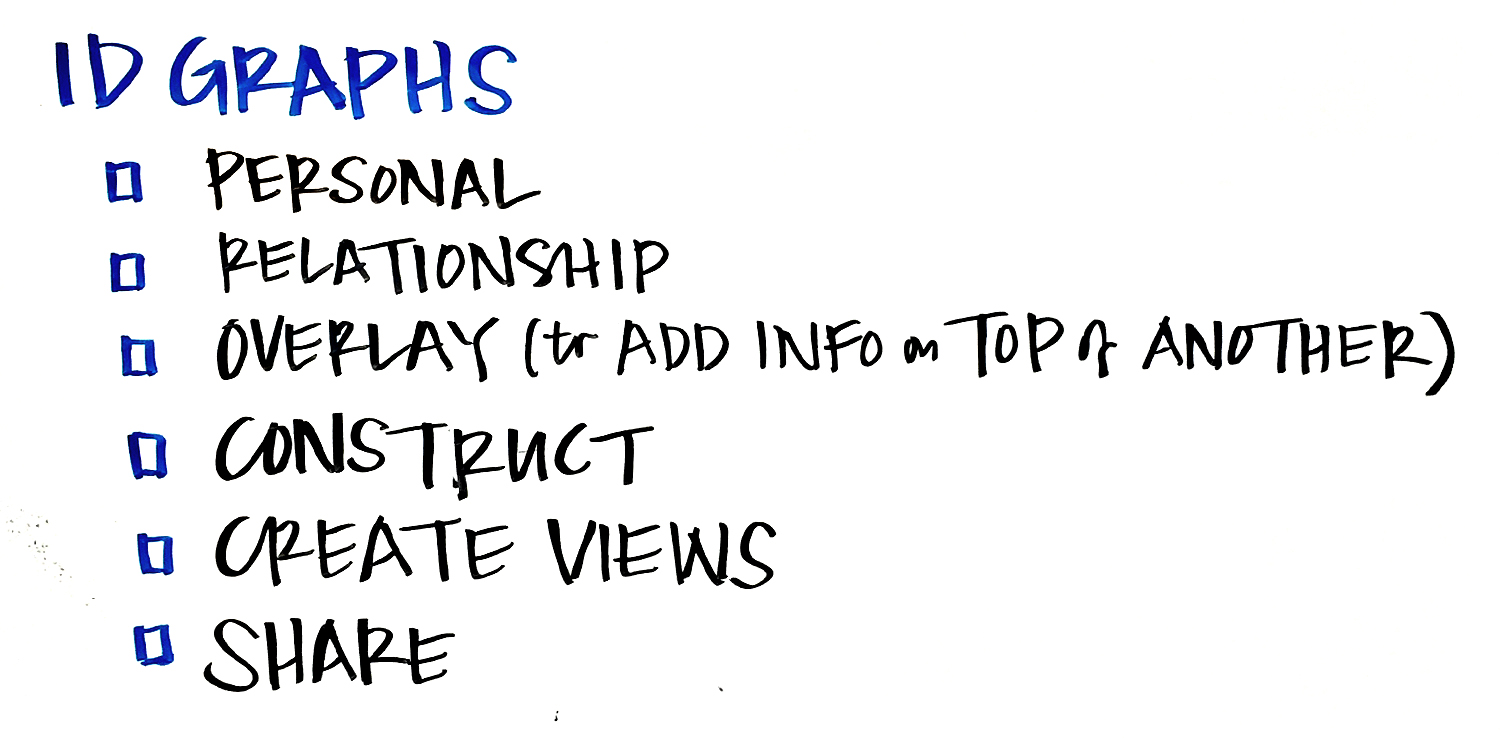 ID GRAPHS
PERSONAL
RELATIONSHIP
OVERLAY (to ADD INFO on TOP of ANOTHER)
CONSTRUCT
CREATE VIEWS
SHARE